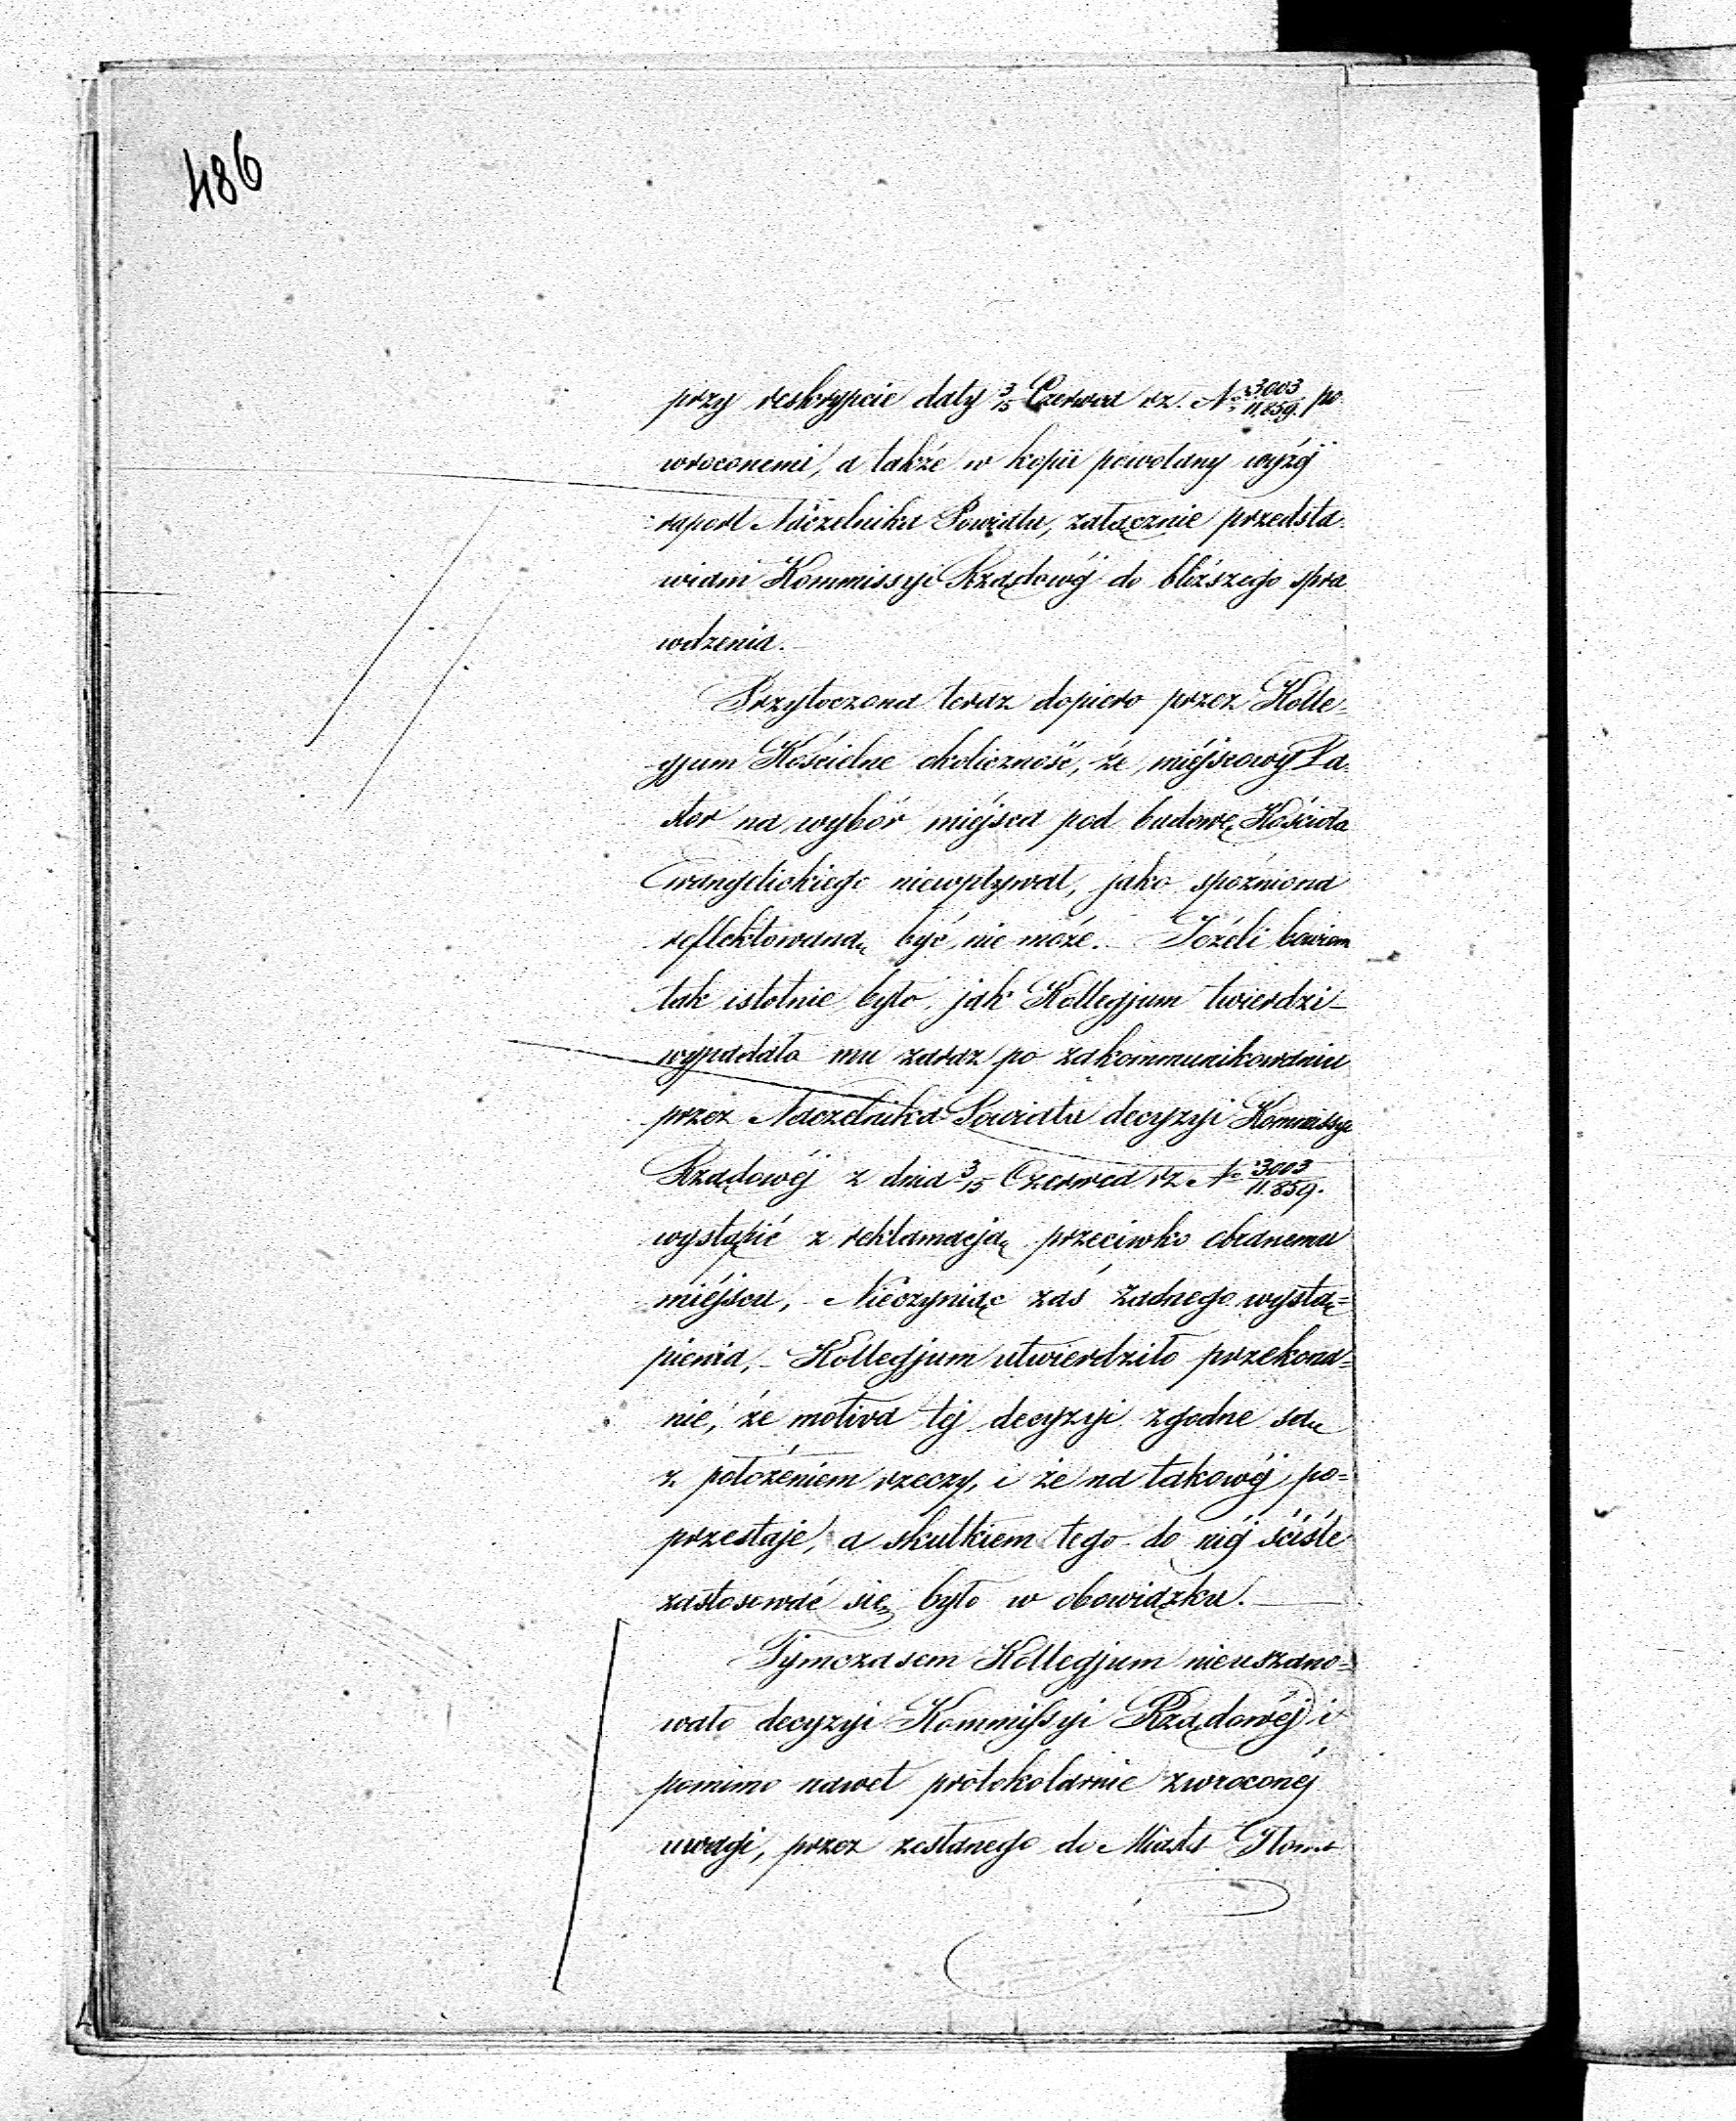 486
przy reskrypcie daty 3/15 Czerwca rz. No 3003/11.859. po
wroconemi, a także w kopii powołany wyżéj
raport Naczelnika Powiatu, załącznie przedsta
wiam Kommissyi Rządowéj do bliższego spra
wdzenia.
Przytoczona teraz dopiero przez Kolle=
gjum Kościelne okoliczność, że miéjscowy Pa
stor na wybór miéjsca pod budowę Kościoła
Ewangelickiego niewpływał, jako spóźniona
reflektowaną być nie może. Jeżeli bowiem
tak istotnie było, jak Kollegjum twierdzi –
wypadało mu zaraz po zakommunikowaniu
przez Naczelnika Powiatu decyzyi Kommissyi
Rządowéj z dnia 3/15 Czerwca rz No 3003/11.859.
wystąpić z reklamacją przeciwko obranemu
miéjscu, – Nieczyniąc zaś żadnego wystą=
pienia, – Kollegjum utwierdziło przekona=
nie, że motiva téj decyzyi zgodne są
z położeniem rzeczy, i że na takowéj po=
przestaje, a skutkiem tego do niéj ściśle
zastosować się było w obowiązku. –
Tymczasem Kollegjum nieuszano=
wało decyzyi Kommissyi Rządowéj i
pomimo nawet protokolarnie zwróconéj
uwagi, przez zesłanego do Miasta